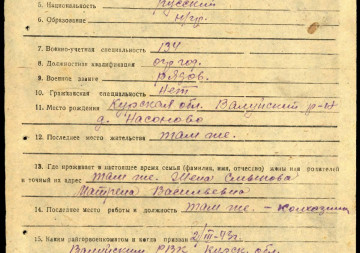 5. Национальность русский
6. Образование н/гр.
7. Военно-учетная специальность 134
8. Должностная квалификация
9. Военное звание рядов.
10. Гражданская специальность Нет
11. Место рождения Курская обл. Валуйский р-н
д. Насоново
12. Последнее место жительства там же.
13. Где проживает в настоящее время семья (фамилия, имя, отчество) жены или родителей
и точный их адрес там же. Жена
Матрена Васильевна
14. Последнее место работы и должность там же. –
15. Каким райгорвоенкоматом и когда призван III-43г.
Валуйским РВК Курск. обл.